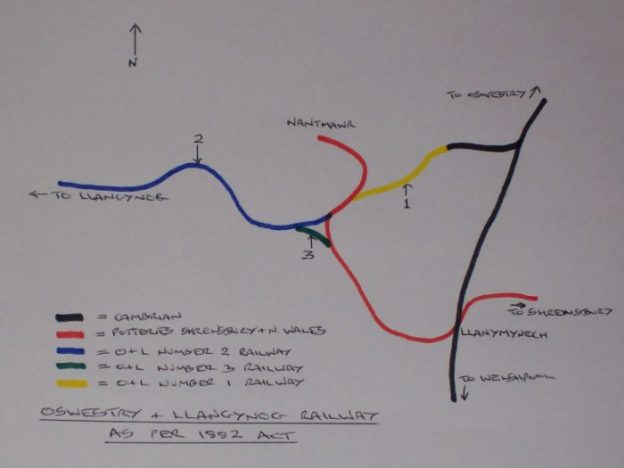 N
TO OSWESTRY
NANTMAWR
2
← TO LLANGYNOG
1
3
TO SHREWSBURY
LLANYMYNECH
TO WELSHPOOL
= CAMBRIAN
= POTTERIES SHREWSBURY + N WALES
= O+L NUMBER 2 RAILWAY
= O+L NUMBER 3 RAILWAY
= O+L NUMBER 1 RAILWAY
OSWESTRY + LLANGYNOG RAILWAY
AS PER 1882 ACT